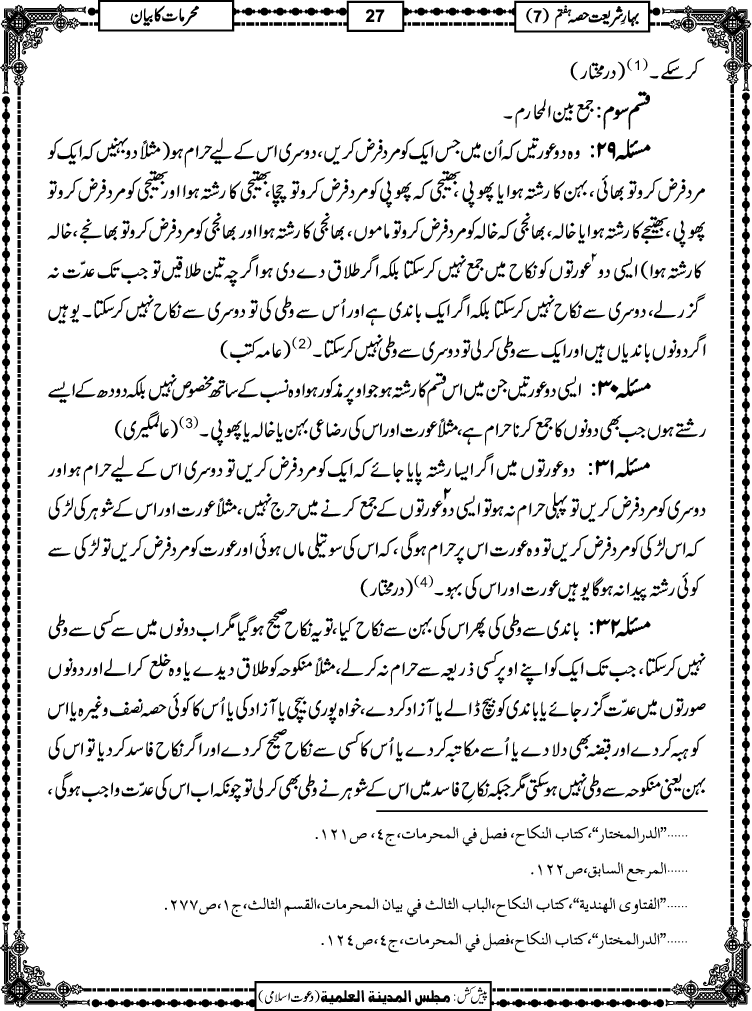 بہارِ شریعت حصہ ہفتم (7)
27
محرمات کا بیان
کر سکے۔ (1) (درمختار)
قسم سوم: جمع بین المحارم۔
مسئلہ ۲۹: وہ دو عورتیں کہ اُن میں جس ایک کو مرد فرض کریں، دوسری اس کے لیے حرام ہو (مثلاً دو بہنیں کہ ایک کو
مرد فرض کرو تو بھائی، بہن کا رشتہ ہوا یا پھوپی، بھتیجی کہ پھوپی کو مرد فرض کرو تو چچا، بھتیجی کا رشتہ ہوا اور بھتیجی کو مرد فرض کرو تو
پھوپی، بھتیجے کا رشتہ ہوا یا خالہ، بھانجی کہ خالہ کو مرد فرض کرو تو ماموں، بھانجی کا رشتہ ہوا اور بھانجی کو مرد فرض کرو تو بھانجے، خالہ
کا رشتہ ہوا) ایسی دو ۲ عورتوں کو نکاح میں جمع نہیں کر سکتا بلکہ اگر طلاق دے دی ہو اگرچہ تین طلاقیں تو جب تک عدّت نہ
گزر لے، دوسری سے نکاح نہیں کر سکتا بلکہ اگر ایک باندی ہے اور اُس سے وطی کی تو دوسری سے نکاح نہیں کر سکتا۔ یوہیں
اگر دونوں باندیاں ہیں اور ایک سے وطی کر لی تو دوسری سے وطی نہیں کر سکتا۔ (2) (عامہ کتب)
مسئلہ ۳۰: ایسی دو عورتیں جن میں اس قسم کا رشتہ ہو جو اوپر مذکور ہوا وہ نسب کے ساتھ مخصوص نہیں بلکہ دودھ کے ایسے
رشتے ہوں جب بھی دونوں کا جمع کرنا حرام ہے، مثلاً عورت اور اس کی رضاعی بہن یا خالہ یا پھوپی۔ (3) (عالمگیری)
مسئلہ ۳۱: دو عورتوں میں اگر ایسا رشتہ پایا جائے کہ ایک کو مرد فرض کریں تو دوسری اس کے لیے حرام ہو اور
دوسری کو مرد فرض کریں تو پہلی حرام نہ ہو تو ایسی دو ۲ عورتوں کے جمع کرنے میں حرج نہیں، مثلاً عورت اور اس کے شوہر کی لڑکی
کہ اس لڑکی کو مرد فرض کریں تو وہ عورت اس پر حرام ہوگی، کہ اس کی سوتیلی ماں ہوئی اور عورت کو مرد فرض کریں تو لڑکی سے
کوئی رشتہ پیدا نہ ہوگا یوہیں عورت اور اس کی بہو۔ (4) (درمختار)
مسئلہ ۳۲: باندی سے وطی کی پھر اس کی بہن سے نکاح کیا، تو یہ نکاح صحیح ہو گیا مگر اب دونوں میں سے کسی سے وطی
نہیں کر سکتا، جب تک ایک کو اپنے اوپر کسی ذریعہ سے حرام نہ کر لے، مثلاً منکوحہ کو طلاق دیدے یا وہ خلع کرالے اور دونوں
صورتوں میں عدّت گزر جائے یا باندی کو بیچ ڈالے یا آزاد کردے، خواہ پوری بیچی یا آزاد کی یا اُس کا کوئی حصہ نصف وغیرہ یا اس
کو ہبہ کردے اور قبضہ بھی دلا دے یا اُسے مکاتبہ کردے یا اُس کا کسی سے نکاح صحیح کردے اور اگر نکاح فاسد کر دیا تو اس کی
بہن یعنی منکوحہ سے وطی نہیں ہو سکتی مگر جبکہ نکاحِ فاسد میں اس کے شوہر نے وطی بھی کر لی تو چونکہ اب اس کی عدّت واجب ہوگی،
......”الدرالمختار“، کتاب النکاح، فصل في المحرمات، ج٤، ص١٢١.
......المرجع السابق، ص١٢٢.
......”الفتاوی الهندية“، کتاب النکاح، الباب الثالث في بيان المحرمات، القسم الثالث، ج١، ص٢٧٧.
......”الدرالمختار“، کتاب النکاح، فصل في المحرمات، ج٤، ص١٢٤.
پیش کش: مجلس المدينة العلمية (دعوت اسلامی)